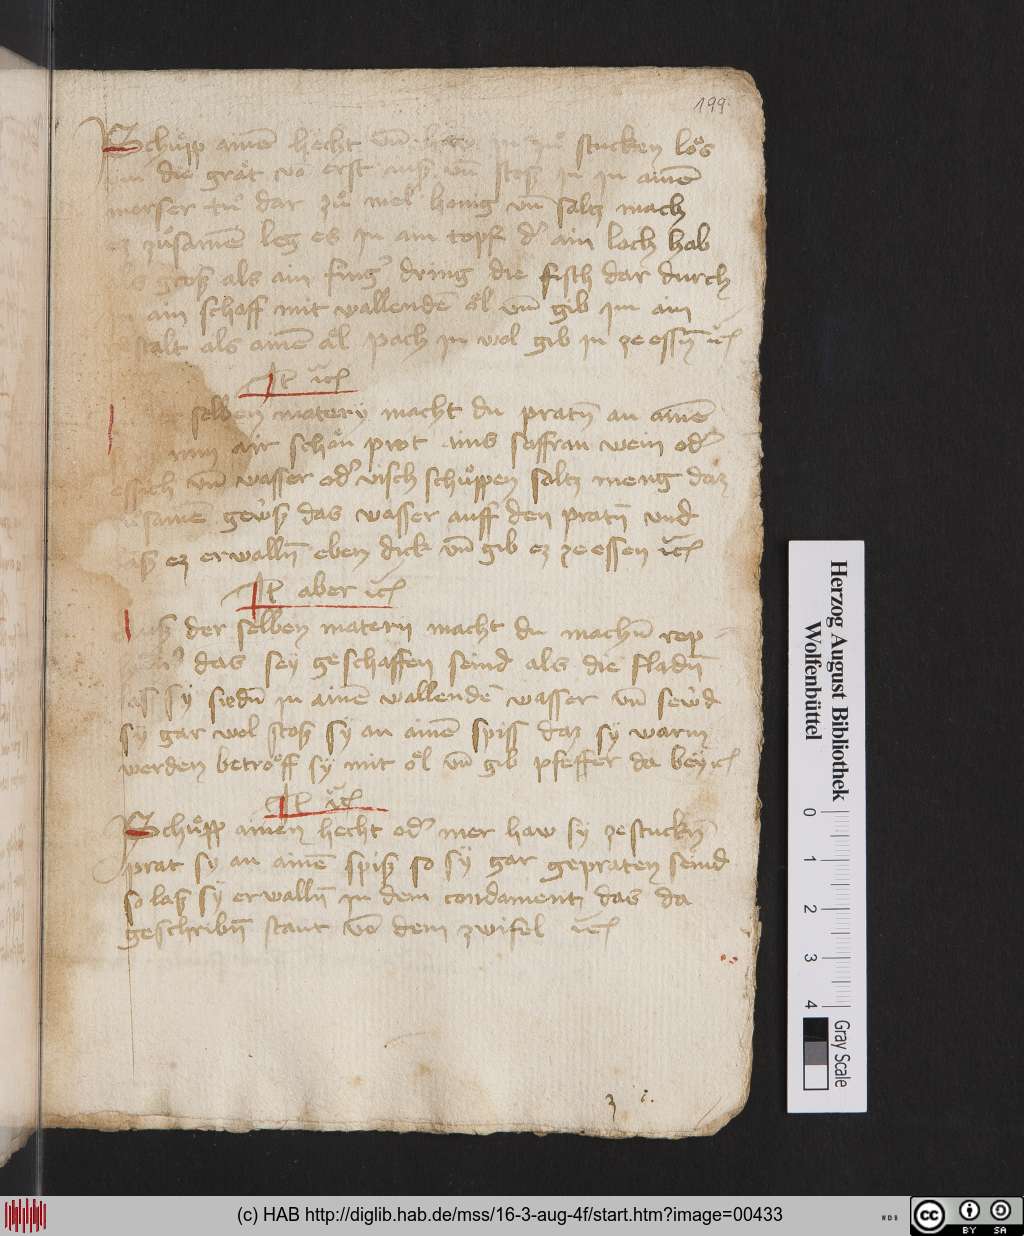 199
Schuͦpp ainē hecht vn̄ haw in zuͦ stucken loͤs
die graͤt vō erst auß vn̄ stoß in in ainē
morser tuͦ dar zuͦ mel honig vn̄ saltz mach
ez zuͦsamē leg es in ain topf dˀ ain loch hab
groß als ain fingˀ dring die fisch dar durch
in ain schaff mit wallendē oͤl vn̄ gib im ain
gestalt als ainē aͤl pach in wol gib in ze essn̄ ıc̄
It̄ ıc̄
selben matery macht du pratn̄ an ainē
nim air schoͤn prot ains saffran wein odˀ
essich vn̄ wasser odˀ visch schuͦppen saltz meng daz
zusamē gewß das wasser auff den pratn̄ vnd
laß ez erwalln̄ eben dick vn̄ gib ez ze essen ıc̄
It̄ aber ıc̄
auß der selben matery macht du machn̄ rep
das sey geschaffen seind als die fladn̄
las sy siedn̄ in ainē wallendē wasser vn̄ sewd
sy gar wol stoß sy an ainē spiss daz sy warm
werden betroͤff sy mit oͤl vn̄ gib pfeffer da bey ıc̄
It̄ ıc̄
Schuͦpp ainen hecht odˀ mer haw sy ze stuckn̄
prat sy an ainē spiß so sy gar gepraten seind
so laß sy erwalln̄ in dem condament das da
geschribn̄ staut vō dem zwifel ıc̄
Herzog August Bibliothek
Wolfenbüttel
0 1 2 3 4
Gray Scale
(c) HAB http://diglib.hab.de/mss/16-3-aug-4f/start.htm?image=00433
cc
BY SA